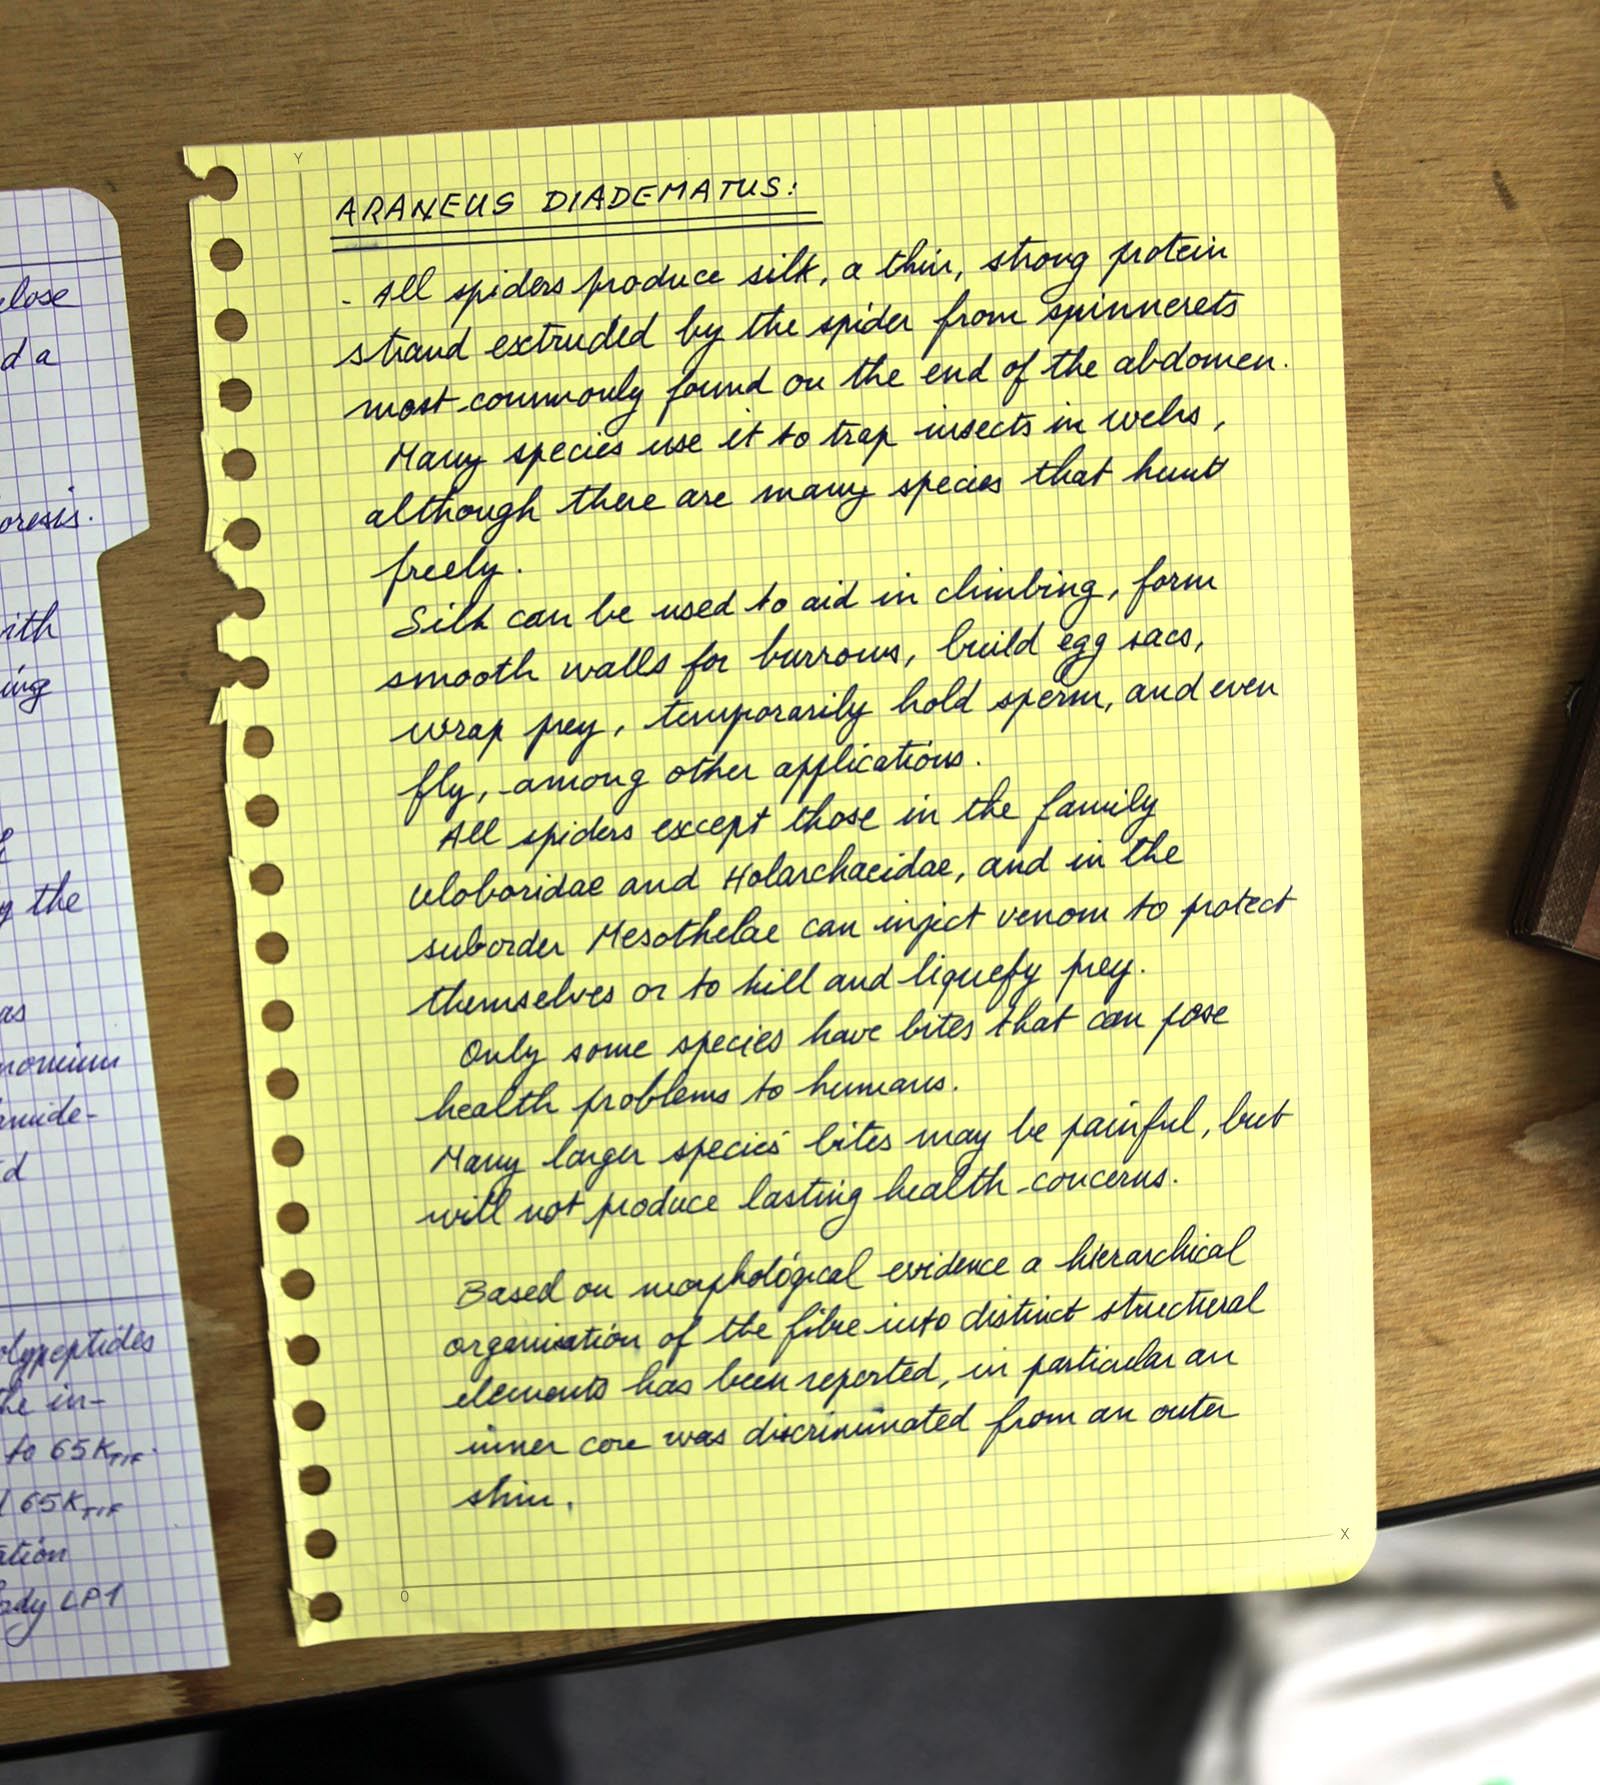 elose
d a
oresis.
ith
ing
y the
as
monium
amide-
d
olypeptides
he in-
to 65K TIF.
65K TIF
ation
ody LP1
Y
ARANEUS DIADEMATUS:
- All spiders produce silk, a thin, strong protein
strand extruded by the spider from spinnerets
most commonly found on the end of the abdomen.
Many species use it to trap insects in webs,
although there are many species that hunt
freely.
Silk can be used to aid in climbing, form
smooth walls for burrows, build egg sacs,
wrap prey, temporarily hold sperm, and even
fly, among other applications.
All spiders except those in the family
Uloboridae and Holarchaeidae, and in the
suborder Mesothelae can inject venom to protect
themselves or to kill and liquefy prey.
Only some species have bites that can pose
health problems to humans.
Many larger species' bites may be painful, but
will not produce lasting health concerns.
Based on morphological evidence a hierarchical
organisation of the fibre into distinct structural
elements has been reported, in particular an
inner core was discriminated from an outer
skin.
X
O